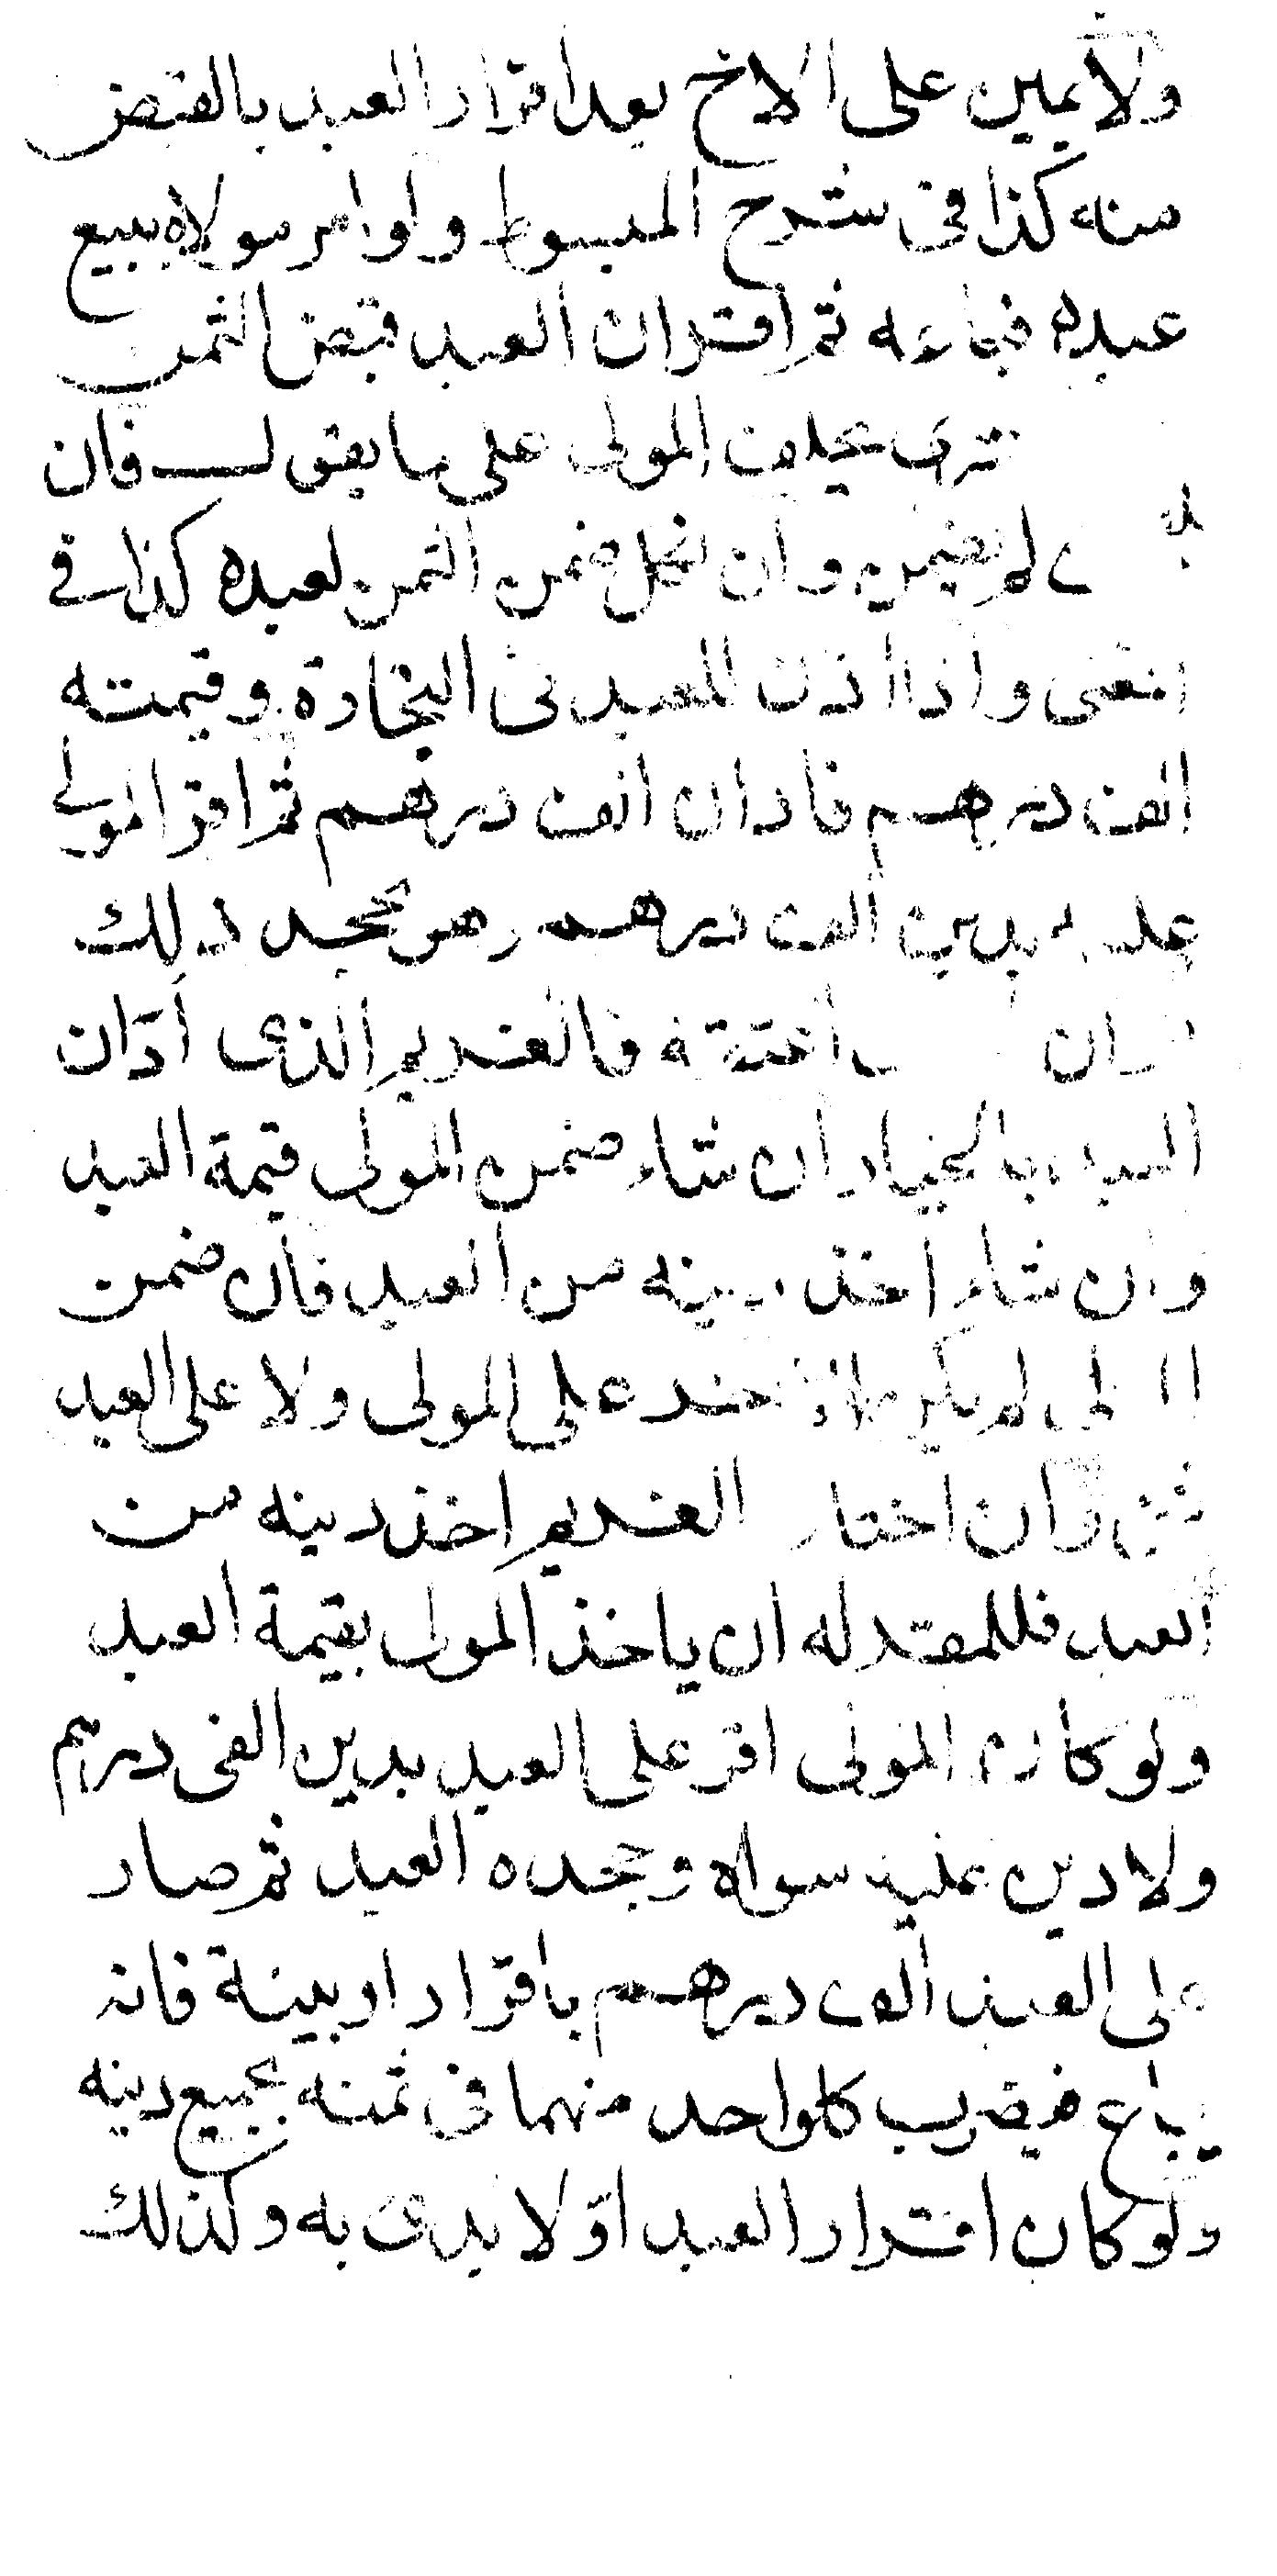 ولا يمين على الاخ بعد اقرار العبد بالقبض
منه كذا فى شرح المبسوط ولو امر مولاه ببيع
عبده فباعه ثم اقر ان العبد قبض الثمن
يحلف المولى على ما يقول فان
لم يضمن وان نكل ضمن الثمن لعبده كذا فى
المغنى واذا اذن للعبد فى التجارة وقيمته
الف درهم فادان الف درهم ثم اقر المولى
عليه بدين الف درهم وهو يجحد ذلك
اعتقه فالغريم الذى ادّان
العبد بالخيار ان شاء ضمن المولى قيمة العبد
وان شاء اخذ دينه من العبد فان ضمن
المولى لم يكن للآخر على المولى ولا على العبد
شئ وان اختار الغريم اخذ دينه من
العبد فللمقر له ان ياخذ المولى بقيمة العبد
ولو كان المولى اقر على العبد بدين الفى درهم
ولا دين عليه سواه وجحده العبد ثم صار
على العبد الف درهم باقرار او ببينة فانه
يباع فيضرب كل واحد منهما فى ثمنه بجميع دينه
ولو كان اقرار العبد اوّلا بدى به وكذلك